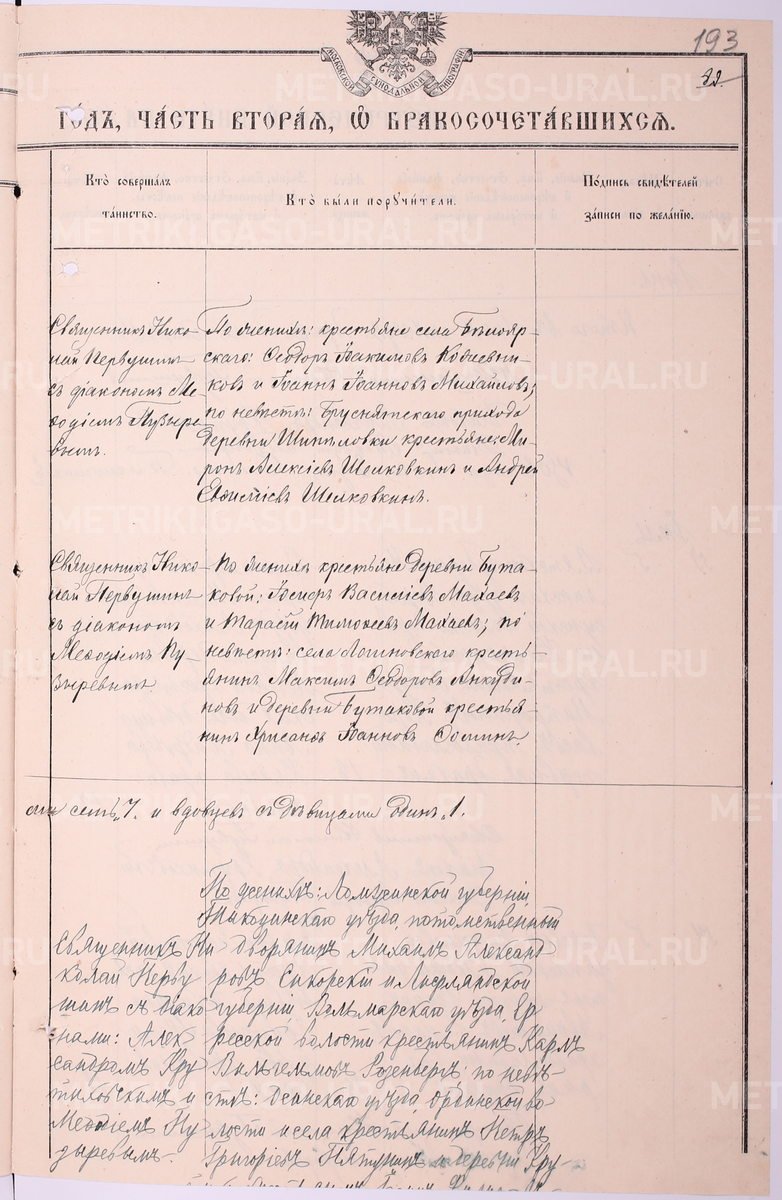 193
МОСКОВСКОЙ СѴНОДАЛЬНОЙ ТИПОГРАФІИ
го́дъ, ча́сть втора́ѧ, ѽ бракосочета́вшихсѧ.
Кто̀ соверша́лъ
та́инство.
Кто̀ бы́ли порꙋчи́тели.
По́дпись свидѣ́телей
за́писи по жела́нїю.
Священникъ Нико-
лай Первушинъ
съ діакономъ Ме-
ѳодіемъ Пузыре-
вымъ.
По женихѣ: крестьяне села Бѣлояр-
скаго: Ѳеодоръ Іоакимовъ
и Іоаннъ Іоанновъ Михайловъ;
по невѣстѣ: Бруснятскаго прихода
деревни Шипѣловки крестьяне: Ми-
ронъ Алексіевъ Шелковкинъ и Андрей
Евѳиміевъ Шелковкинъ.
Священникъ Нико-
лай Первушинъ
съ діакономъ
Меѳодіемъ Пу-
зыревымъ
По женихѣ крестьяне деревни Бута-
ковой: Іосифъ Василіевъ Махаевъ
и Тарасій Тимоѳеевъ Махаевъ; по
невѣстѣ: села Логиновскаго кресть-
янинъ Максимъ Ѳеодоровъ Анкуди-
новъ и деревни Бутаковой крестья-
нинъ Хрисанѳъ Іоанновъ Ѳоминъ.
семь „7. и вдовцевъ съ дѣвицами одинъ „1.
Священникъ Ни
колай Перву
шинъ съ діако
нами: Алек
сандромъ Кру
тиховскимъ и
Меѳодіемъ Пу
зыревымъ.
По женихѣ: Ломжинской губерніи,
уѣзда, потомственный
дворянинъ Михаилъ Александ
ровъ Сикорскій и Лифляндской
губерніи, Вольмарскаго уѣзда, Ер
ресской волости крестьянинъ Карлъ
Вильгельмовъ Розенбергъ; по невѣ
стѣ: Осинскаго уѣзда, Ординской во
лости и села крестьянинъ Петръ
Григоріевъ Пятунинъ и деревни Кру